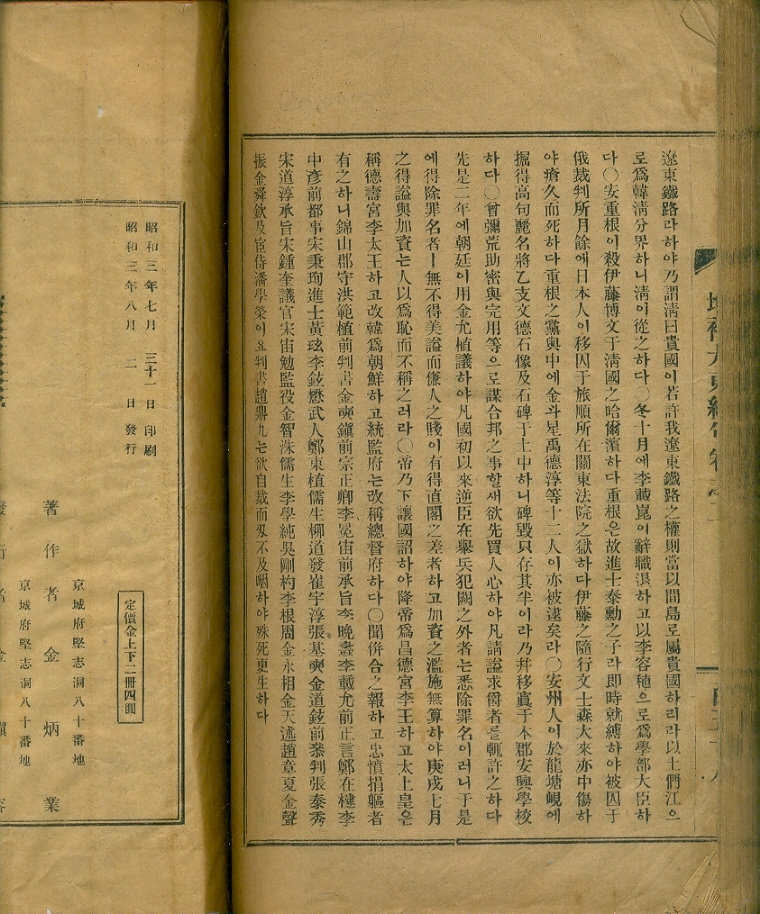 遼東鐵路라하야乃謂淸曰貴國이若許我遼東鐵路之權則當以間島로屬貴國하리라以土們江으
로爲韓淸分界하니淸이從之하다○冬十月에李載崑이辭職退하고以李容稙으로爲學部大臣하
다○安重根이殺伊藤博文于淸國之哈爾濱하다重根은故進士泰勳之子라卽時就縛하야被囚于
俄裁判所月餘에日本人이移囚于旅順所在關東法院之獄하다伊藤之隨行文士森大來亦中傷하
야瘡久而死하다重根之黨與中에金斗星禹德淳等十二人이亦被逮矣라○安州人이於龍塘峴에
掘得高句麗名將乙支文德石像及石碑于土中하니碑毁只存其半이라乃幷移寘于本郡安興學校
하다○曾彌荒助密與完用等으로謀合邦之事할새欲先買人心하야凡請諡求爵者를輒許之하다
先是二年에朝廷이用金允植議하야凡國初以來逆臣在擧兵犯闕之外者는悉除罪名이러니于是
에得除罪名者ㅣ無不得美諡而傔人之賤이有得直閣之差者하고加資之濫施無算하야庚戌七月
之得諡與加資는人以爲恥而不稱之러라○帝乃下讓國詔하야降帝爲昌德宮李王하고太上皇은
稱德壽宮李太王하고改韓爲朝鮮하고統監府는改稱總督府하다○聞倂合之報하고忠憤捐軀者
有之하니錦山郡守洪範植前判書金奭鎭前宗正卿李冕宙前承旨李晩燾李載允前正言鄭在楗李
中彦前都事宋秉珣進士黃玹李鉉燃武人鄭東植儒生柳道發崔宇淳張基奭金道鉉前叅判張泰秀
宋道淳承旨宋鍾奎議官宋宙勉監役金智洙儒生李學純吳剛杓李根周金永相金天述趙章夏金聲
振金舜欽及宦侍潘學榮이요判書趙鼎九는欲自裁而刃不及咽하야殊死更生하다
昭和三年七月 三十一日 印刷
昭和三年八月 二 日 發行
定價金上下二冊四圓
京城府堅志洞八十番地
著作者 金炳業
京城府堅志洞八十番地